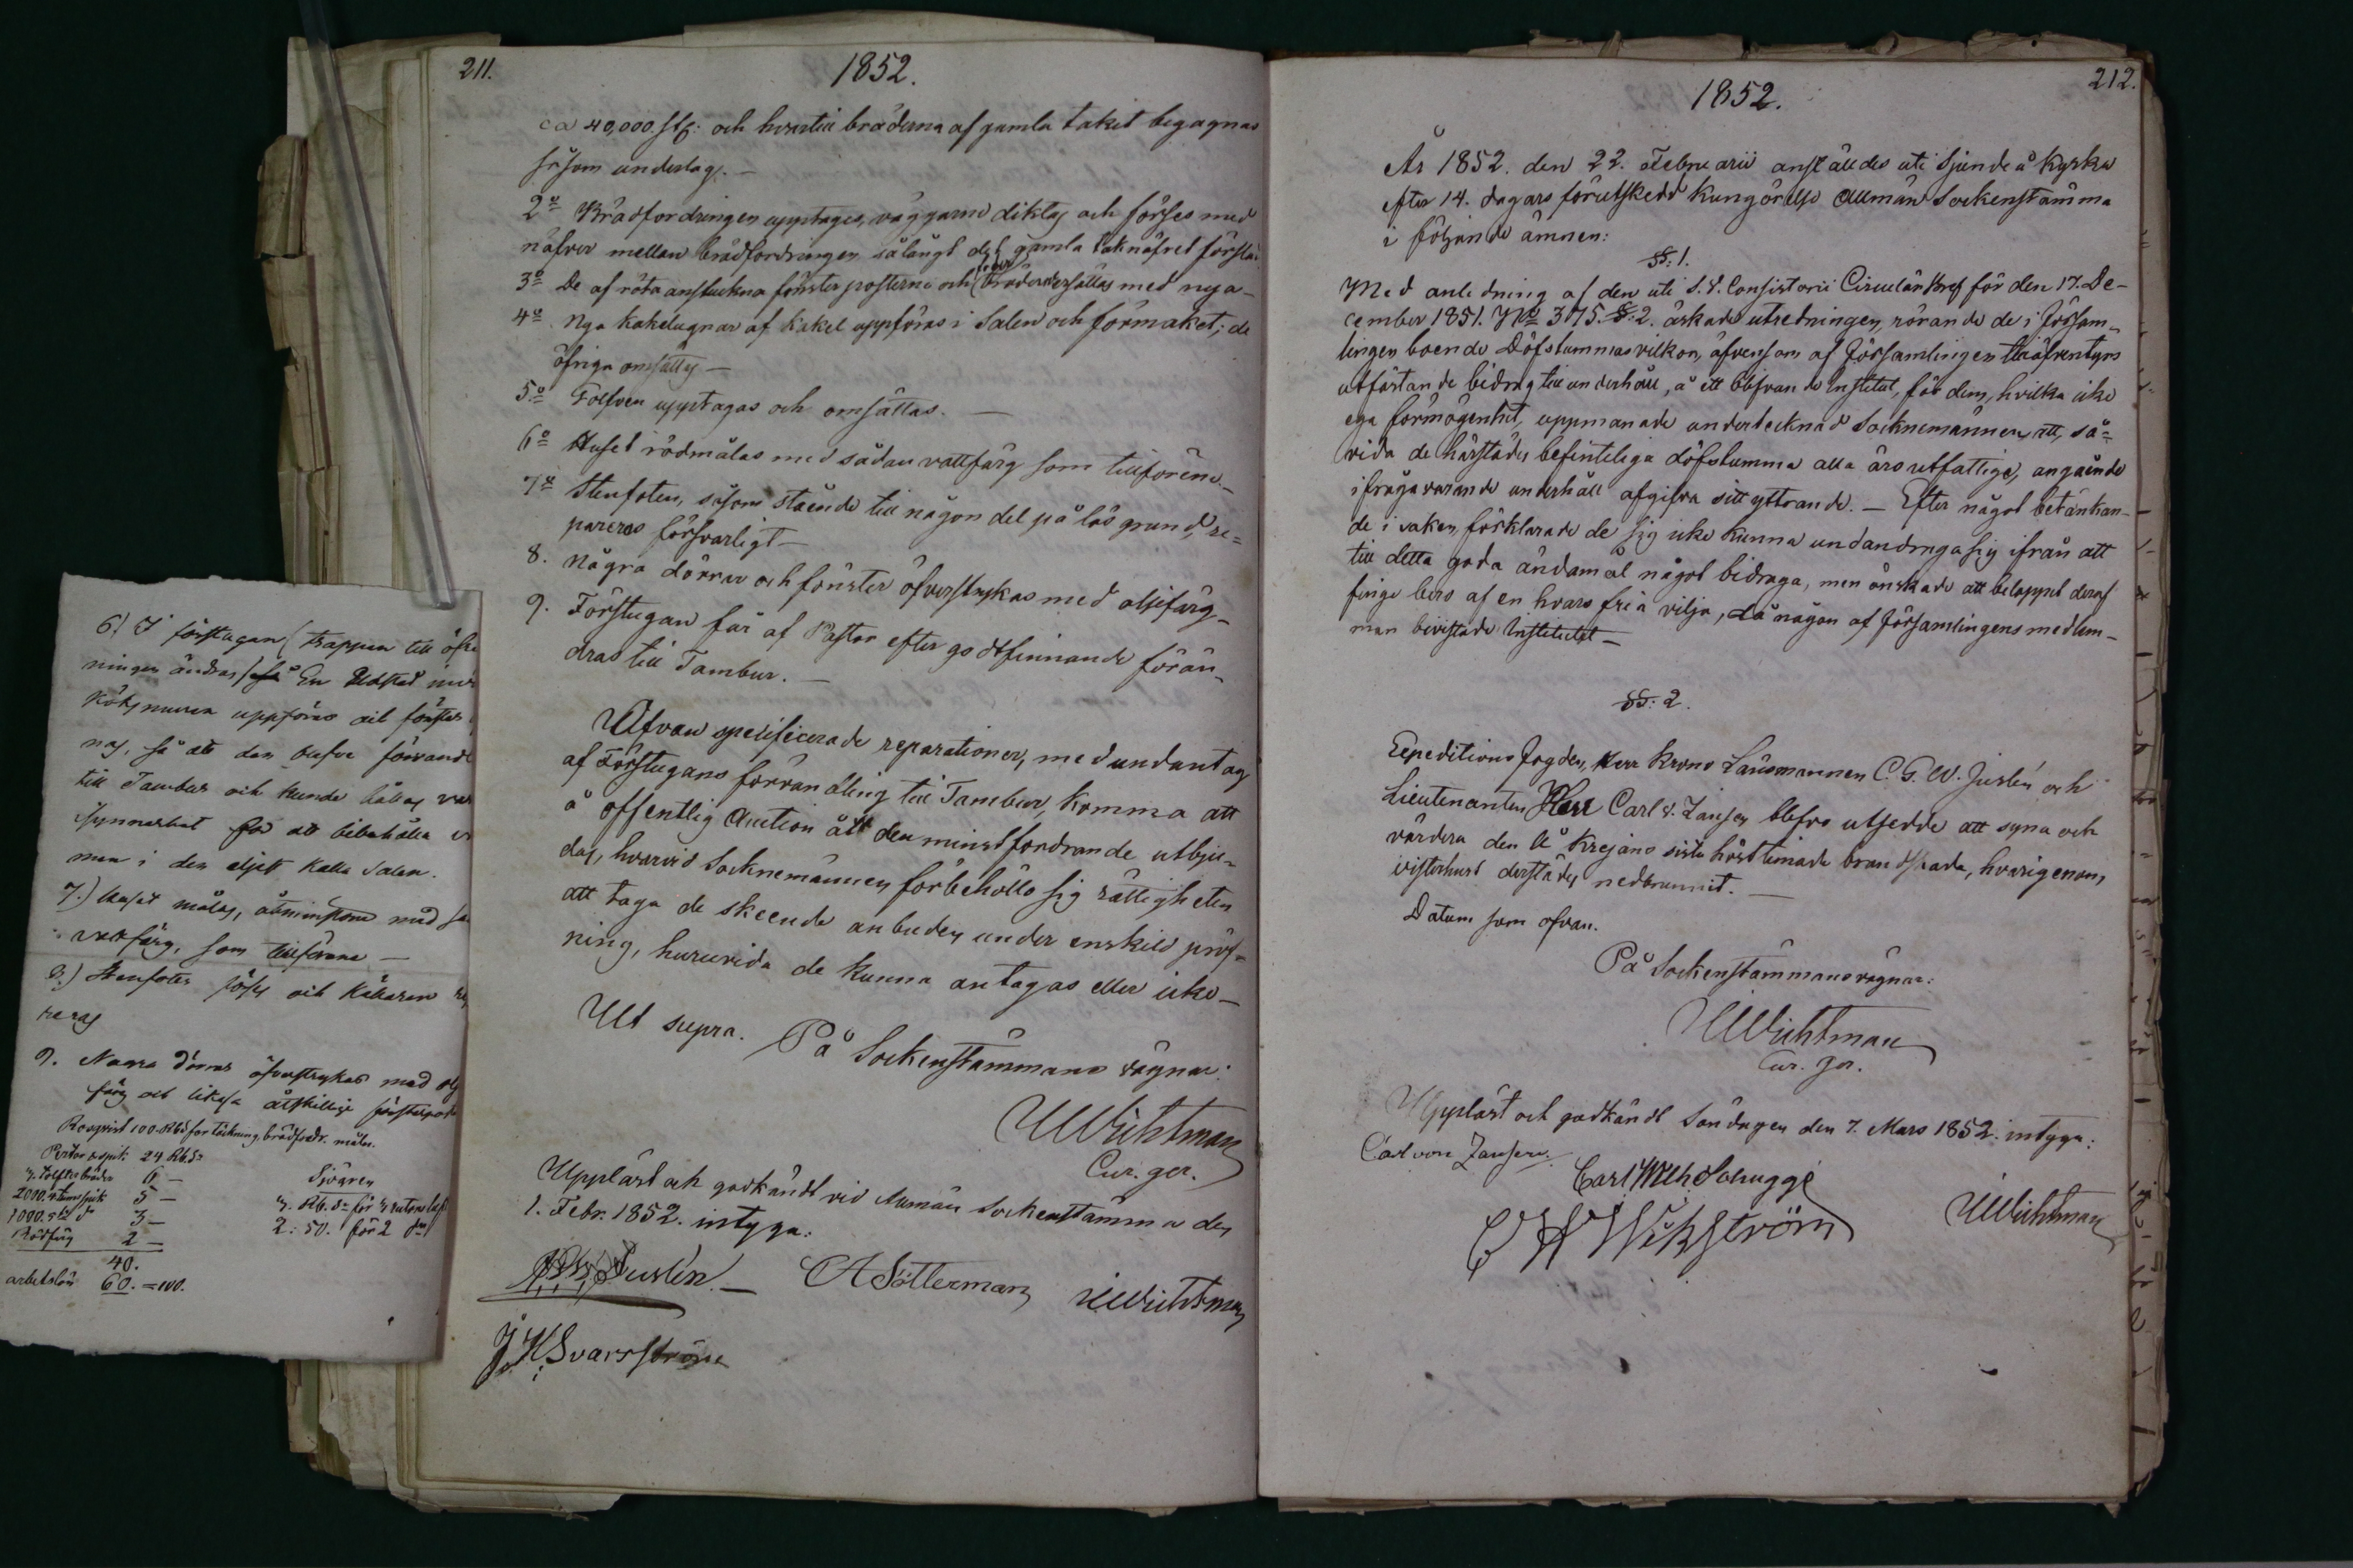 211.
1852.
ca 40,000. st: och hvartill bräderna af gamla taket begagnas
såsom underlag. —
2º Brädfordringen upptages, väggarne diktas och förses med
näfver mellan brädfordringen sålångt det gamla taknäfret förslår
3º De af röta anstuckna fönster posterne och bräder ersättas med nya —
4º Nya kakelugnar af kakel uppföras i Salen och förmaket; de
öfriga omsättas —
5º Golfven upptagas och omsättas. —
6º Huset rödmålas med sådan vattfärg som tillförene. —
7º Stenfoten, såsom stående till någon del på lös grund, re=
pareras försvarligt —
8. Några dörrar och fönster öfverstrykas med oljefärg —
9. Förstugan får af Pastor efter godtfinnande förän-
dras till Tambur. —
Ofvan specificerade reparationer, med undantag
af Förstugans förvandling till Tambur, komma att
å offentlig Auction åt den minstfordrande utbju-
das, hvarvid Socknemännen förbehöllo sig rättigheten
att taga de skeende anbuden under enskild pröf-
ning, huruvida de kunna antagas eller icke —
Ut supra. På Sockenstämmans vägnar:
UWichtman
Cur. ger.
Uppläst och godkändt vid Allmän Sockenstämma den
1. Febr. 1852. intyga:
Juslén. — CA Sötterman UWichtman
J. H. Svarsström
6) I förstugan (trappan till öfre
ningen ändras) så En Eldstad
Köksmuren uppföras och fönster
nas, så att den blefve förvandl
till Tambur och kunde hållas var
synnerhet för att bibehålla
men i den eljest kalla Salen.
7.) Huset målas, åtminstone med
vattfärg, som tillförene —
8.) Stenfoten och Källaren
reras
9. Några dörrar öfverstrykas med olj
färg och likaså åtskillige fönsterpost
100. Rbd för täckning, brädfodr. måln.
24 Rbd
bräder 6 —
2000. spik 5 —
1000. 3 —
Rödfärg 2 —
40.
arbetslön 60. = 100.
Sjögren
2: 50. för 2
1852.
212.
År 1852. den 22. Februarii anställdes uti Sjundeå Kyrka
efter 14. dagars förutskedd Kungörelse Allmän Sockenstämma
i följande ämnen:
§§: 1.
Med anledning af den uti S. V. Consistorii Circulär Bref för den 17. De-
cember 1851. Nº 375. §: 2. äskade utredningen, rörande de i försam-
lingen boende Döfstummas vilkor, äfvensom af församlingen tilläfventyrs
utfästande bidrag till underhåll, å ett blifvande Institut, för dem, hvilka icke
ega förmögenhet, uppmanade undertecknad Socknemännen, att, så-
vida de härstädes befinteliga döfstumma alla äro utfattige, angående
ifrågavarande underhåll afgifva sitt yttrande. — Efter något betänkan-
de i saken, förklarade de sig icke kunna undandraga sig ifrån att
till detta goda ändamål något bidraga, men önskade att beloppet deraf
finge bero af en hvars fria vilja, då någon af församlingens medlem-
mar bivistade Institutet —
§§: 2.
Expeditions Fogden, Herr Krono Länsmannen C. G. W. Juslén och
Lieutenanten Herr Carl v. Zansen blefvo utsedde att syna och
värdera den å Krejans sista höst timade brandskada, hvarigenom
visthuset derstädes nedbrunnit. —
Datum som ofvan.
På Sockenstämmans vägnar:
UWichtman
Cur. ger.
Uppläst och godkändt Söndagen den 7. Mars 1852. intyga:
Carl von Zansen.
Carl Wilh Schugge
C H Wikström UWichtman